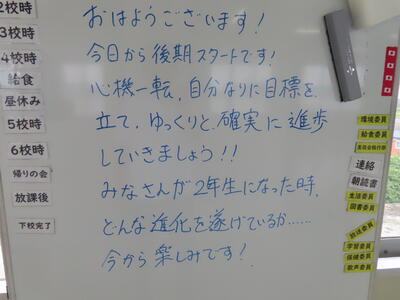 おはようございます!
今日から後期スタートです!
心機一転,自分なりに目標を
立て,ゆっくりと,確実に進歩
していきましょう!!
みなさんが2年生になった時,
どんな進化を遂げているか……
今から楽しみです!
2校時
3校時
4校時
給食
昼休み
5校時
6校時
帰りの会
放課後
下校完了
環境委員
給食委員
連絡
朝読書
生活委員
図書委員
放送委員
学習委員
保健委員
歌声委員